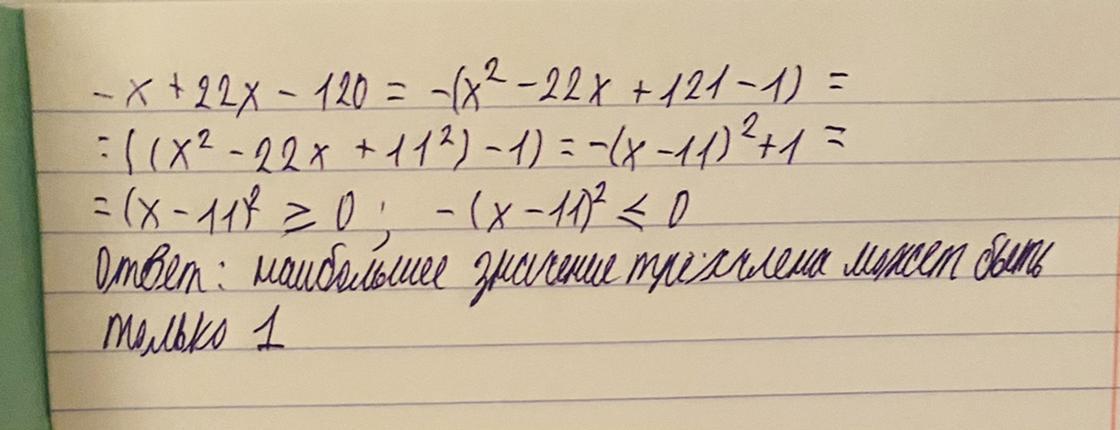 -x + 22x - 120 = -(x² - 22x + 121 - 1) =
= ((x² - 22x + 11²) - 1) = -(x - 11)² + 1 =
= (x - 11)² ≥ 0 ; -(x - 11)² ≤ 0
Ответ: наибольшее значение трехчлена может быть
только 1